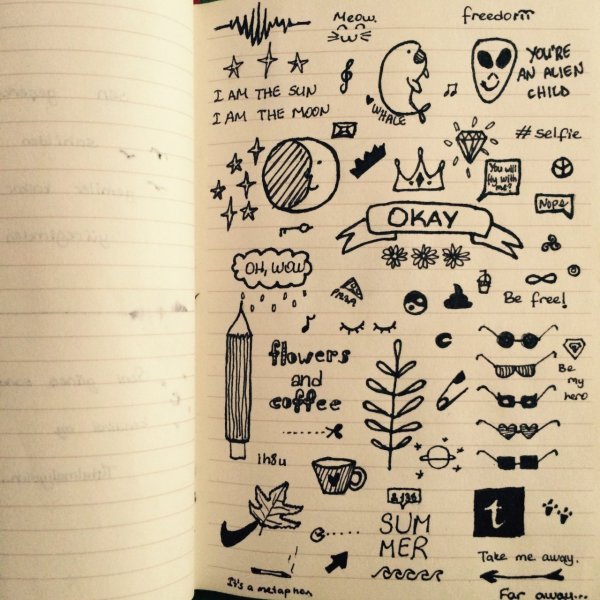 Meow.
freedom
YOU'RE
AN ALIEN
CHILD
I AM THE SUN
I AM THE MOON
WHALE
#selfie
You will
fly with
me?
Nope
OKAY
OH, WOW
PIZZA
Be free!
flowers
and
coffee
Be
my
hero
ih8u
SUM
MER
t
Take me away.
It's a metaphor
Far away...